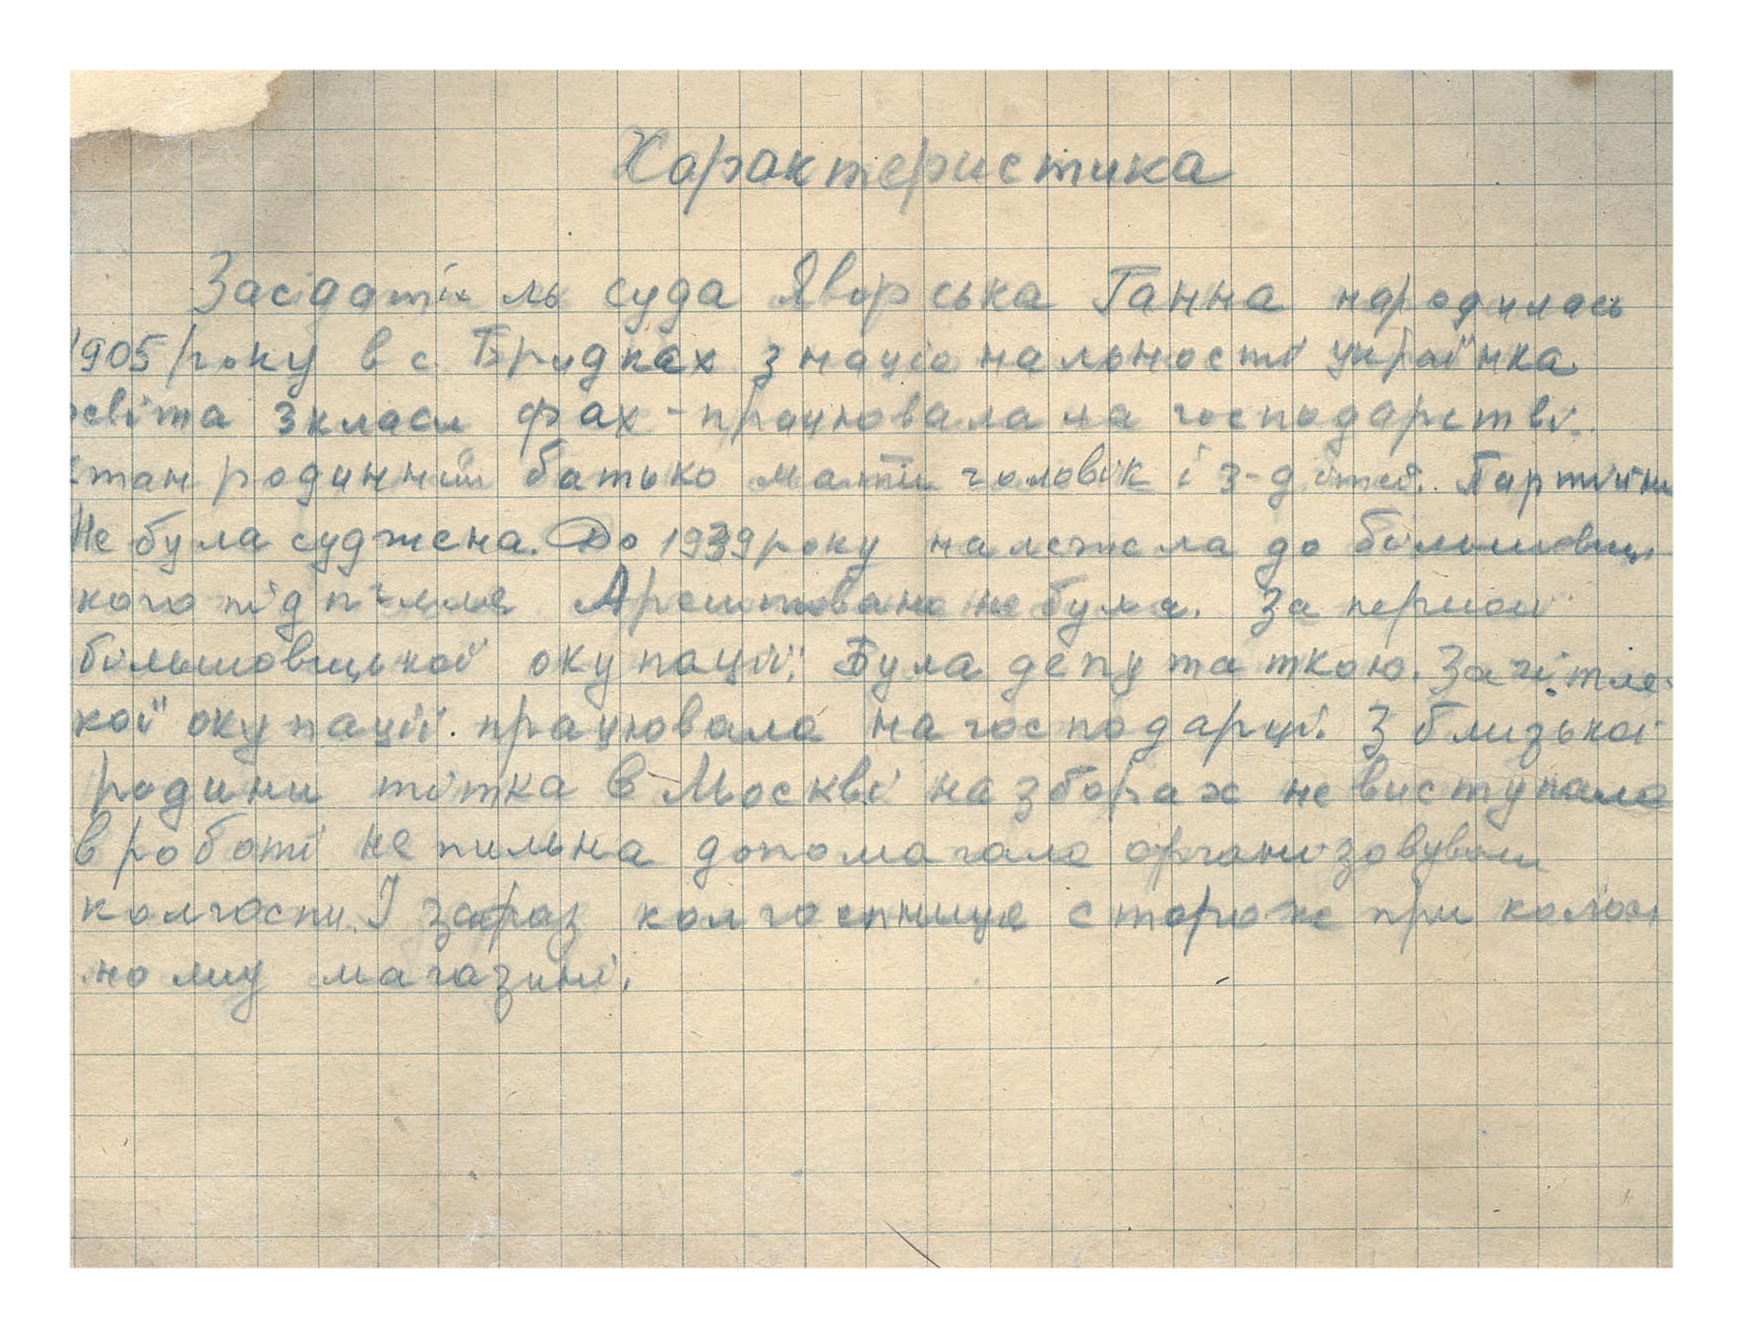 Характеристика
Засідатіль суда Яворська Ганна народилась
1905 року в с. Бридках з національності українка
освіта 3 класи фах - працювала на господарстві.
стан родинний батько мати чоловік і 3-дітей. Партійна
Не була суджена. До 1939 року належала до більшовиц-
кого підпілля Арештована не була. За період
більшовицької окупації. Була депутаткою. За гітле-
кої окупації. працювала на господарці. З близької
родини тітка в Москві на зборах не виступала
в роботі не пильна допомагала організовувати
колгоспи. І зараз колгоспниця сторож при
ному магазині.